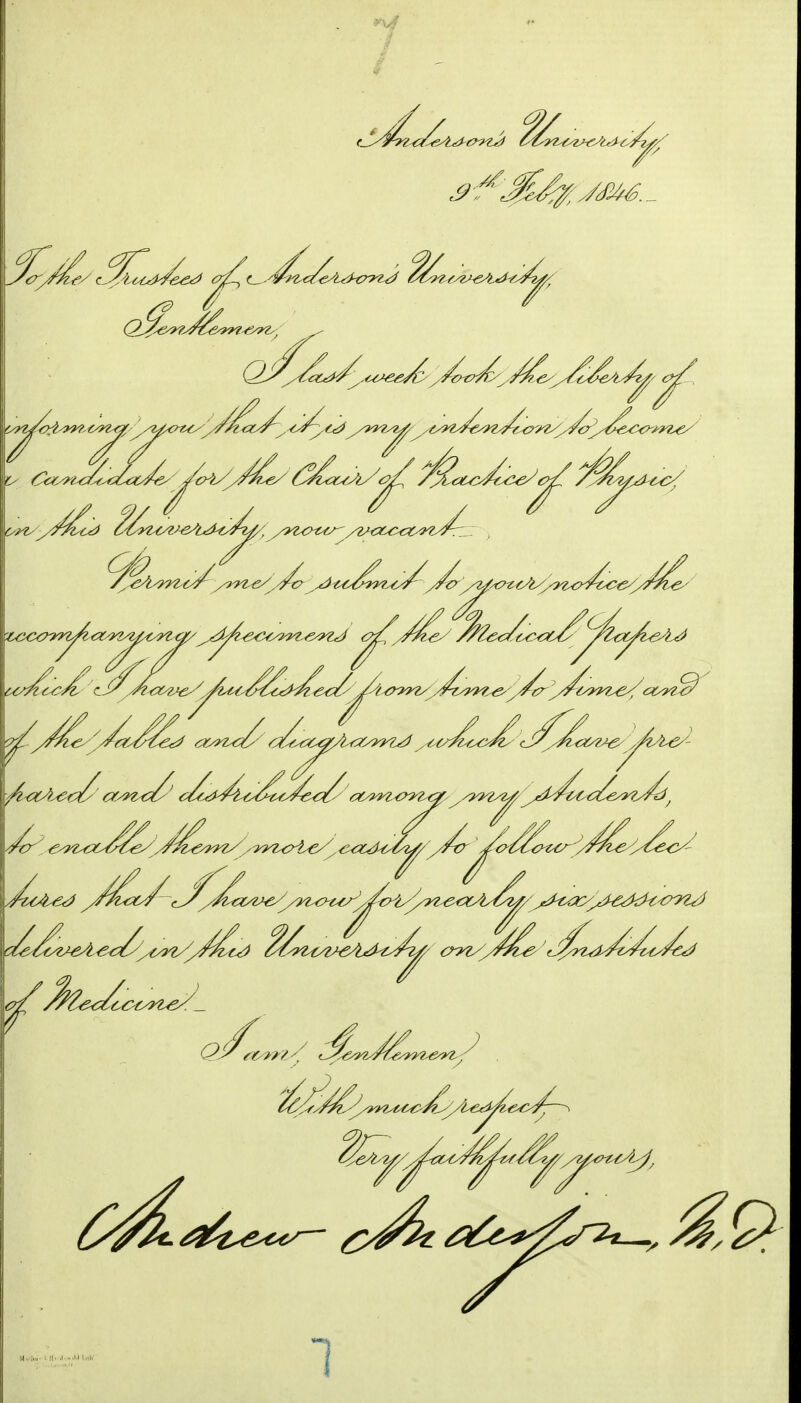 7
Anderson's University,
9th Feby, 1846._
To the Trustees of Anderson's University,
Gentlemen,
I last week took the liberty of
informing you that it is my intention to become
a Candidate for the Chair of Practice of Physic,
in this University, now vacant.
Permit me to submit to your notice the
accompanying specimens of the Medical papers
which I have published from time to time, and
of the tables and diagrams which I have pre-
pared and distributed among my students,
to enable them more easily to follow the lec-
tures that I have now for nearly six sessions
delivered in this University on the Institutes
of Medicine._
I am, Gentlemen,
With much respect,
Very faithfully yours,
Andrew Anderson, M.D.
7